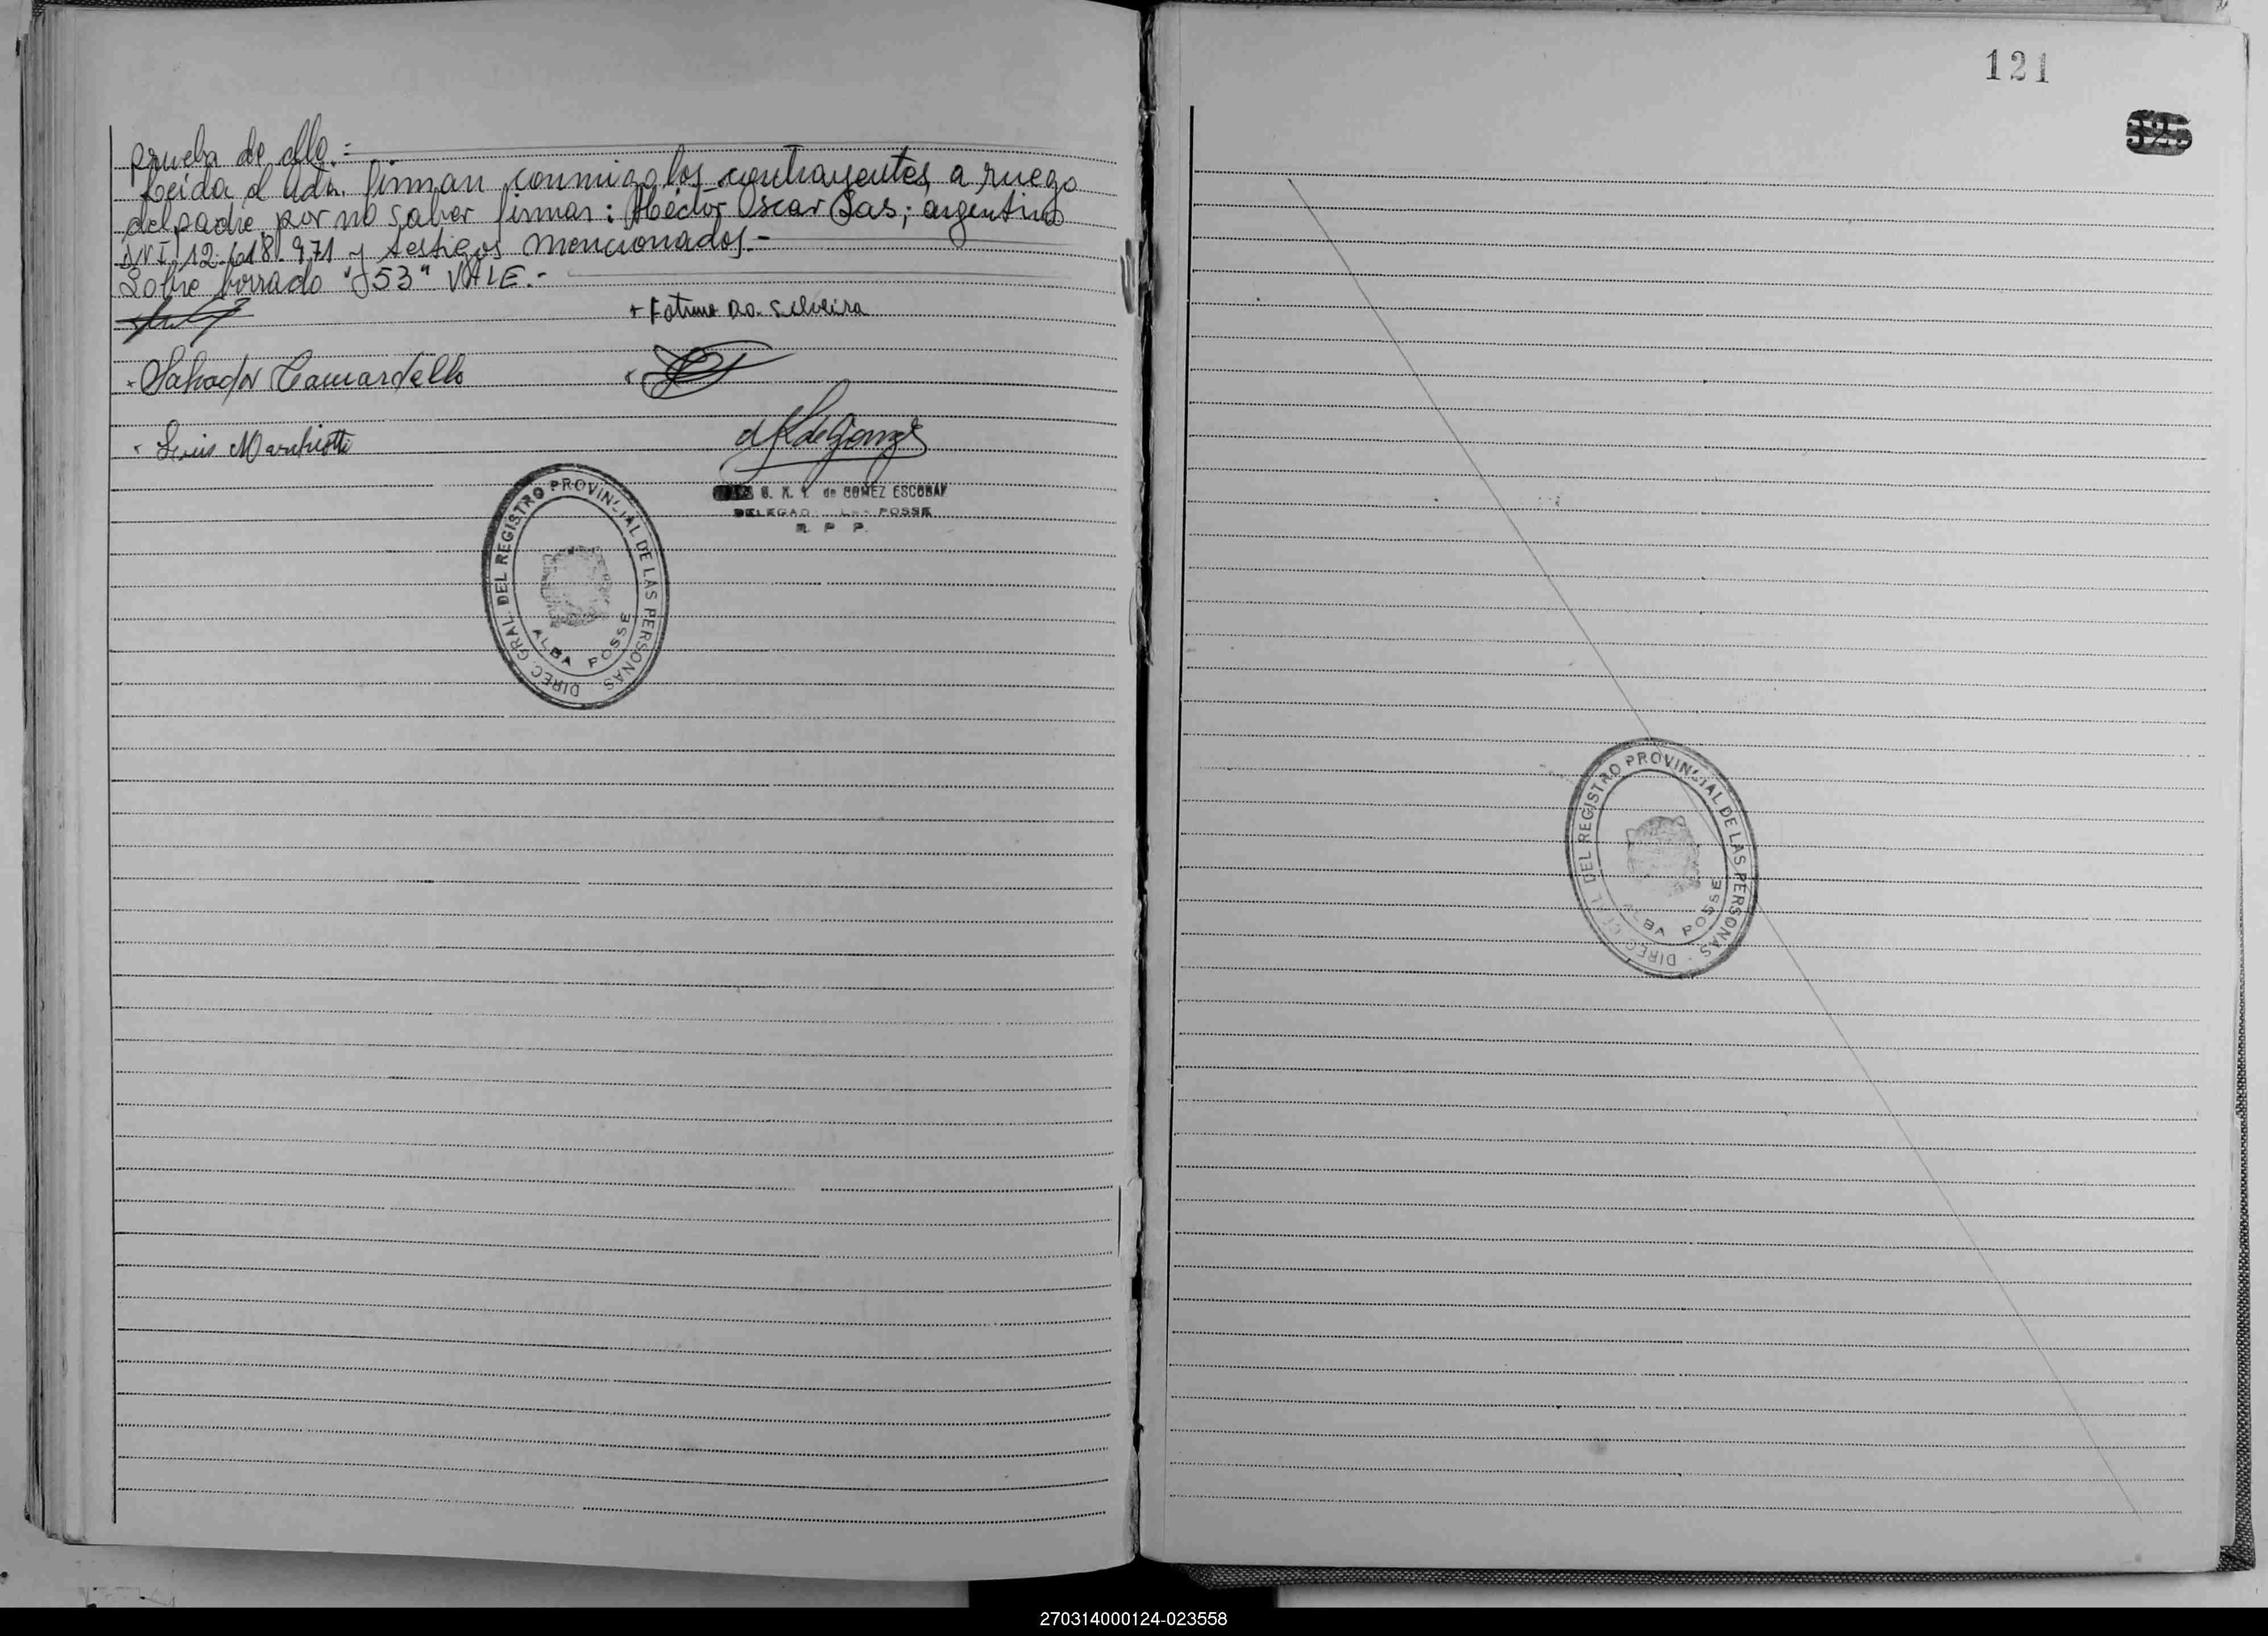 prueba de ello.=
Leida el Acta. firman conmigo los contrayentes, a ruego
del padre, por no saber firmar: Héctor Oscar Sas; argentino
DNI. 12.618.971 y testigos mencionados.-
Sobre borrado "53" VALE.-
+ Fatima Da. Silveira
Salvador Camardello
Luis Marchiotti
G. N. Y. de GOMEZ ESCOBAR
POSSE
R P P.
DIREC. GRAL. DEL REGISTRO PROVINCIAL DE LAS PERSONAS
ALBA POSSE
121
DIREC. DEL REGISTRO PROVINCIAL DE LAS PERSONAS
ALBA POSSE
270314000124-023558